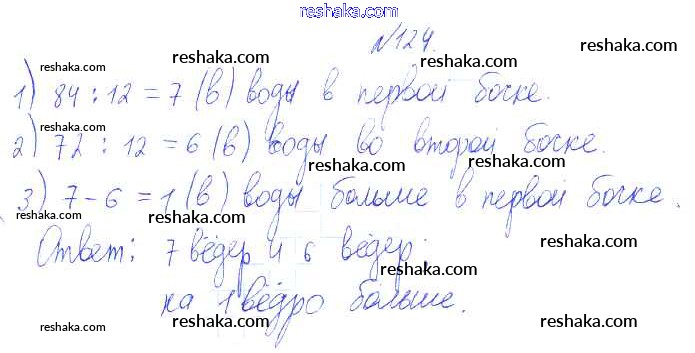 reshaka.com
№124.
reshaka.com
reshaka.com
1) 84 : 12 = 7 (в) воды в первой бочке.
reshaka.com
reshaka.com
reshaka.com
2) 72 : 12 = 6 (в) воды во второй бочке.
reshaka.com
reshaka.com
reshaka.com
3) 7 - 6 = 1 (в) воды больше в первой бочке.
reshaka.com
reshaka.com
reshaka.com
Ответ: 7 вёдер и 6 вёдер;
reshaka.com
reshaka.com
на 1 ведро больше.
reshaka.com
reshaka.com
reshaka.com